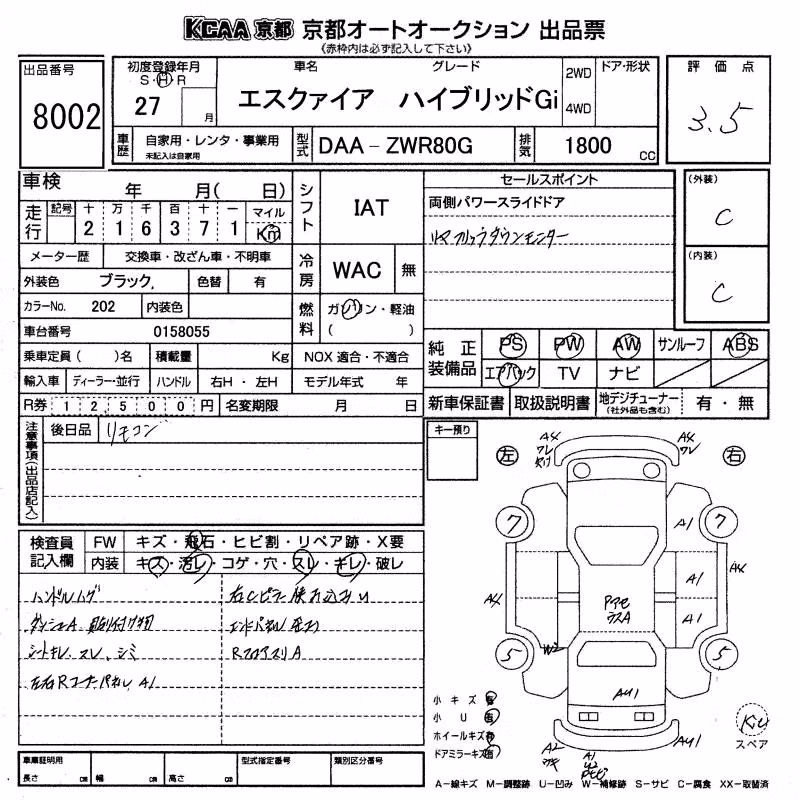 KCAA 京都 京都オートオークション 出品票
《赤枠内は必ず記入して下さい》
出品番号
8002
初度登録年月
S・H・R
27 月
車名 グレード
エスクァイア ハイブリッドGi
2WD
4WD
ドア・形状
評価点
3.5
車歴
自家用・レンタ・事業用
未記入は自家用
型式
DAA-ZWR80G
排気
1800 cc
車検 年 月( 日)
走行
記号 十 万 千 百 十 一 マイル
2 1 6 3 7 1 Km
メーター歴 交換車・改ざん車・不明車
外装色 ブラック. 色替 有
カラーNo. 202 内装色
車台番号 0158055
乗車定員( )名 積載量 Kg
輸入車 ディーラー・並行 ハンドル 右H・左H
R券 1 2 5 0 0 円 名変期限 月 日
シフト
IAT
冷房
WAC 無
燃料
ガソリン・軽油
( )
NOX 適合・不適合
モデル年式 年
セールスポイント
両側パワースライドドア
リヤフリップダウンモニター
(外装)
C
(内装)
C
純正装備品
PS PW AW サンルーフ ABS
エアバック TV ナビ
新車保証書 取扱説明書 地デジチューナー(社外品も含む) 有・無
注意事項(出品店記入)
後日品 リモコン
キー預り
検査員記入欄
FW キズ・飛石・ヒビ割・リペア跡・X要
内装 キズ・汚レ・コゲ・穴・スレ・キレ・破レ
ハンドルハゲ
ダッシュA 貼り付け物
シートキレ、スレ、シミ
左右Rコーナーパネル A1
右Cピラー 挟み込み
エンドパネル
A
左 右
A4
ワレ
A4
ワレ
7 7
A1
A4
A4
A1
A1
W2
5 5
AU1
AU1
A2
A1
小キズ 有
小U 有
ホイールキズ有
ドアミラーキズ有
スペア
A-線キズ M-調整跡 U-凹み W-補修跡 S-サビ C-腐食 XX-取替済
車庫証明用
長さ cm 幅 cm 高さ cm
型式指定番号
類別区分番号